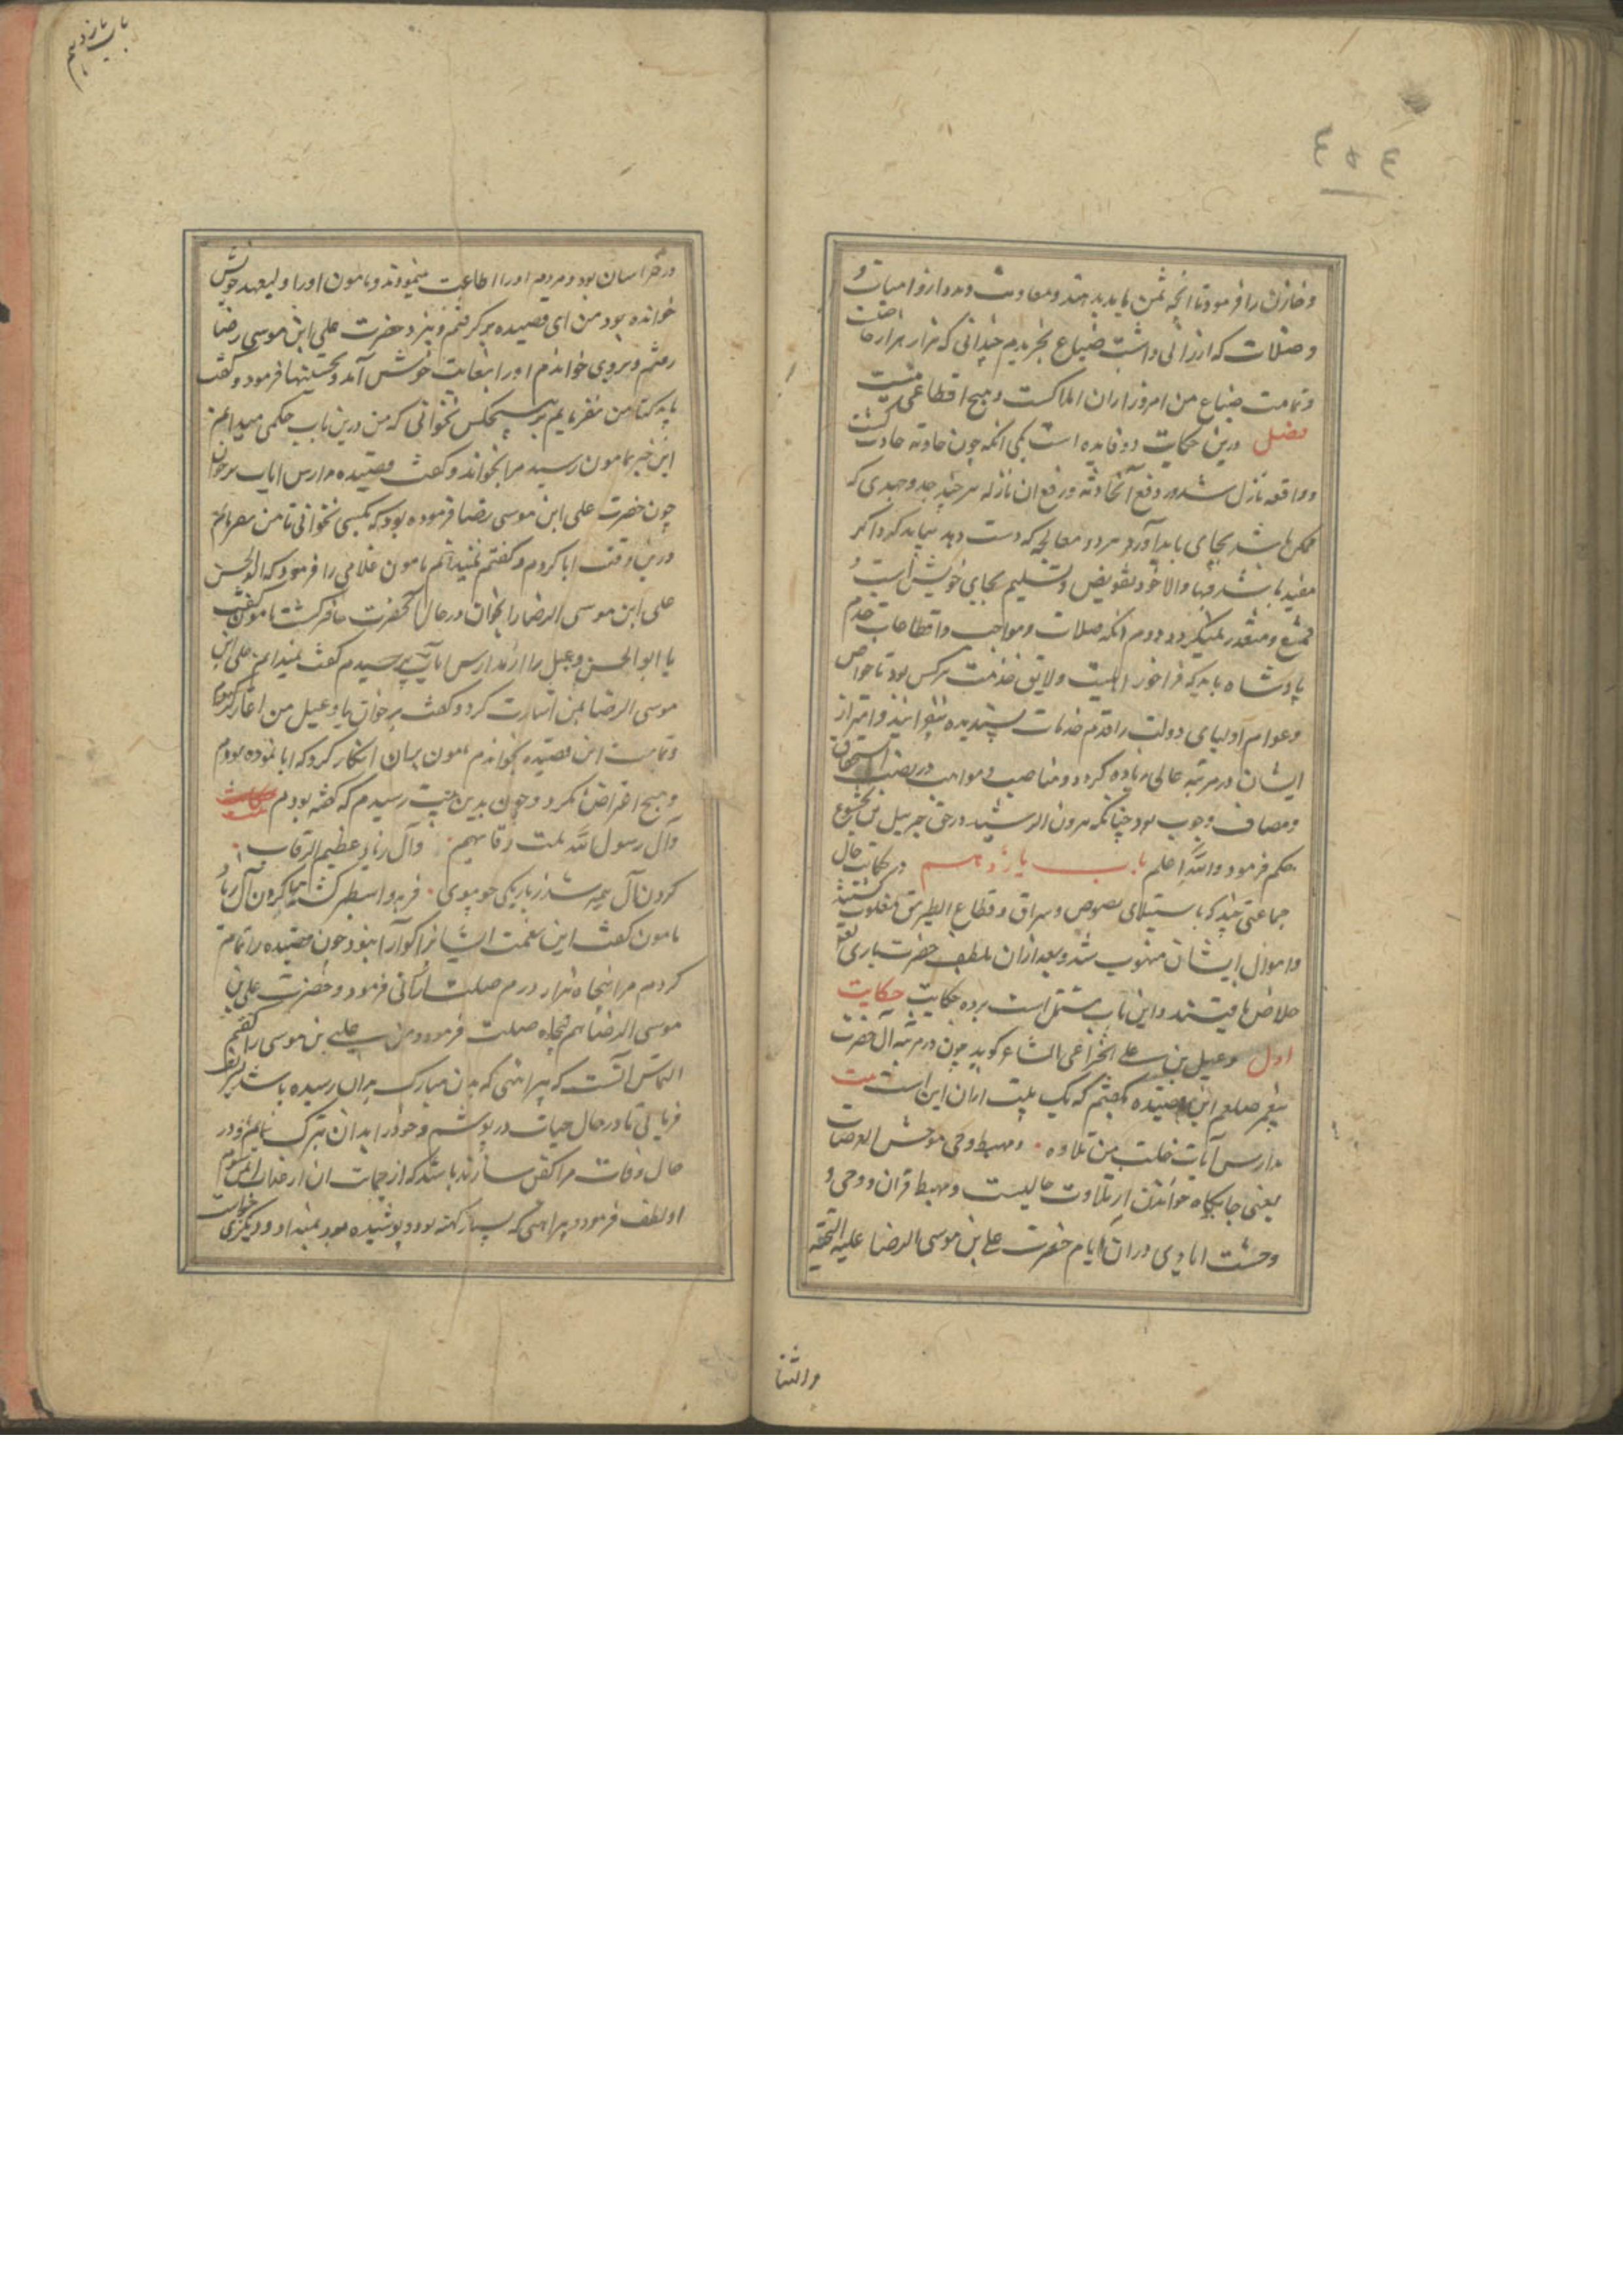 باب یازدهم
٤٥٤
و خازن را فرمود تا انچه ثمن باید بدهند و معاونت و مدد از و امیات و
وصلات که ارزانی داشت ضیاع بخریدم چندانی که هزار هزار حاصلست
و تمامت ضیاع من امروز ازان املاکست و هیچ اقطاعی نیست
فصل درین حکایت دو فایده است یکی انکه چون حادثه حادث کشت
و واقعه نازل شد در دفع آنحادثه و رفع ان نازله هر چند جد و جهدی که
ممکن باشد بجای باید آورد و هر دو معالجه که دست دهد بباید کرد اکر
مفید باشد فبها و الا خود تفویض و تسلیم بجای خویش است و
ممتنع و متعذر نمیکردد دوم انکه صلات و مواجب و اقطاعات خدم
پادشاه باید که فراخور اهلیت و لایق خدمت هرکس بود تا خواص
و عوام اولیای دولت را قدم خدمات پسندیده بیفزایند و امتیاز
ایشان در مرتبه عالی زیاده کردد و مناصب و مواهب در نصب استحقاق
و مصاف وجوب بود چنانکه هرون الرشید در حق جبرییل بن بختیشوع
حکم فرمود والله اعلم باب یازدهم در حکایت حال
جماعتی چند که باستیلای لصوص و سراق و قطاع الطریق مغلوب کشتند
و اموال ایشان منهوب شد و بعد ازان بلطف حضرت باری تعالی
خلاص یافتند و این باب مشتمل است بر ده حکایت حکایت
اول دعبل بن علی الخزاعی الشاعر کوید چون در مرثیه آل حضرت
پیغمبر صلعم این قصیده بکفتم که یک بیت ازان این است بیت
مدارس آیات خلت من تلاوه ٠ و مهبط وحی موحش العرصات
یعنی جایکاه خواندن از تلاوت خالیست و مهبط قران و وحی و
وحشت ابادی در ان ایام حضرت علی بن موسی الرضا علیه التحیة
و الثنا
در خراسان بود و مردم او را اطاعت مینمودند و مامون او را ولیعهد خویش
خوانده بود من ای قصیده بر کرفتم و بنزد حضرت علی ابن موسی رضا
رفتم و بروی خواندم او را بغایت خوش آمد و تحسینها فرمود و کفت
باید که تا من نفرمایم بر هیچکس نخوانی که من درین باب حکمی میدانم
این خبر بمامون رسید مرا بخواند و کفت قصیده مدارس ایات برخوان
چون حضرت علی ابن موسی رضا فرموده بود که بکسی نخوانی تا من نفرمایم
درین وقت ابا کردم و کفتم نمیدانم مامون غلامی را فرمود که ابوالحسن
علی ابن موسی الرضا را بخوان در حال آنحضرت حاضر کشت مامون کفت
یا ابوالحسن دعبل را از مدارس ایات پرسیدم کفت نمیدانم علی ابن
موسی الرضا بمن اشارت کرد و کفت برخوان یا دعبل من اغاز کردم
و تمامت این قصیده بخواندم مامون بران انکار کرد که ابا نموده بودم
و هیچ اعتراض نکرد و چون بدین بیت رسیدم که کفته بودم
وآل رسول الله هلبت رقابهم ٠ وآل زیاد عظیم الرقاب
کردن آل پیمبر شد ز باریکی چو موی ٠ فربه و اسطبر کشته کردن آل زیاد
مامون کفت این نعمت ایشانرا کوارا مبود چون قصیده را تمام
کردم مرا پنجاه هزار درم صلت ارزانی فرمود و حضرت علی بن
موسی الرضا هم پنجاه صلت فرمود من علی بن موسی را کفتم
التماس آنست که پیراهنی که بدن مبارک بران رسیده باشد تشریف
فرمایی تا در حال حیات در پوشم و خود را بدان تبرک نمایم و در
حال وفات مرا کفن سازند باشد که از جهات ان از عذاب ایمن شوم
او لطف فرمود و پیراهنی که بسیار کهنه بود و پوشیده بود بمن داد و دیکری